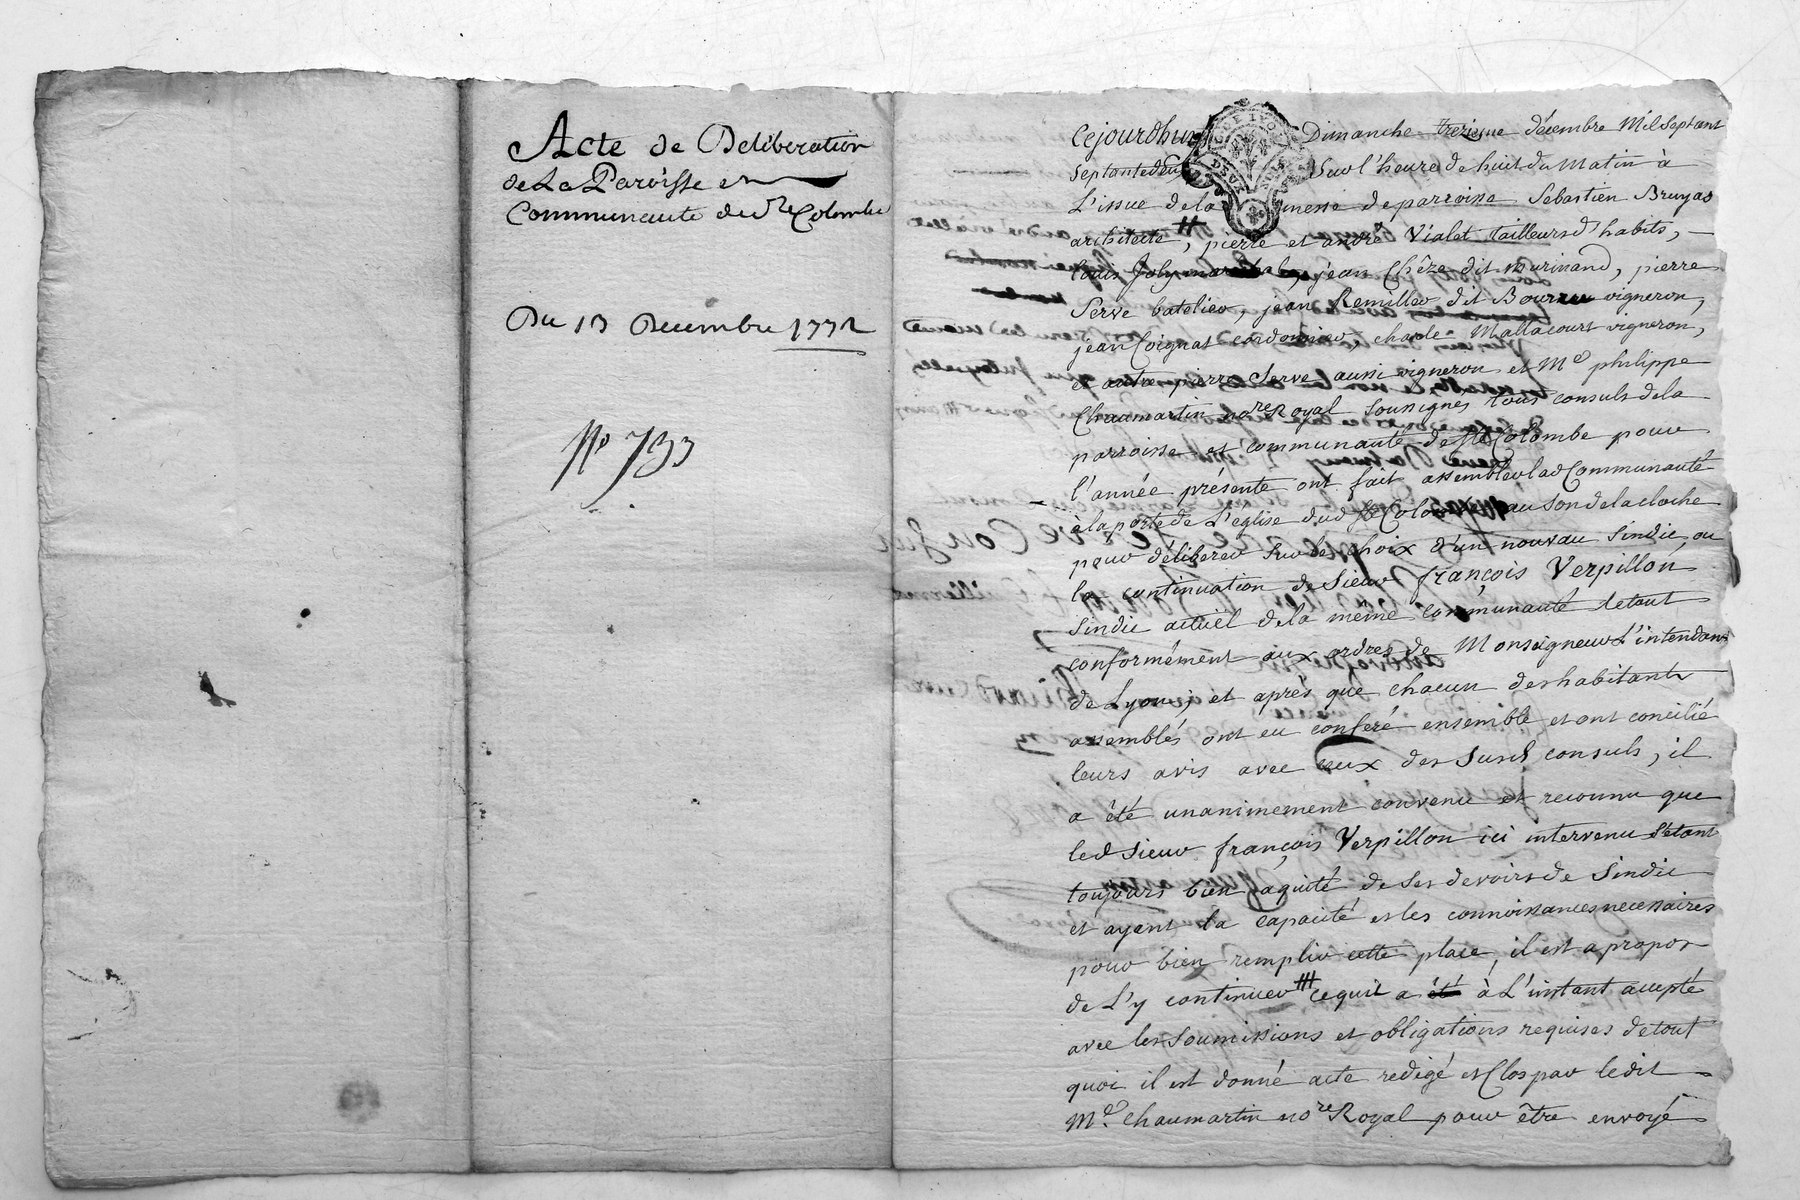 Acte de Deliberation
de La Paroisse et
Communauté de Ste Colombe
Du 13 Decembre 1772
No 733
Cejourdhuy Dimanche treziesme décembre Mil Septcent
Septantedeux Sur l'heure de huit du Matin à
L'issue de la messe de parroisse Sebastien Bruyas
architecte, pierre et andré Vialet tailleurs d'habits,
Louis Joly marechal, jean Chêze dit murinand, pierre
Serve batelier, jean Remiller dit Bourru vigneron,
jean Coignat cordonnier, charle Mallacourt vigneron,
et autre pierre Serve aussi vigneron et Me philippe
Chaumartin nore Royal soussignés, tous consuls de la
parroisse et communauté de Ste Colombe pour
l'année présente ont fait assembler lad Communauté
à la porte de L'église dud Ste Colombe au son de la cloche
pour déliberer Sur le choix d'un nouveau Sindic, ou
la continuation de Sieur françois Verpillon
Sindic actuel de la même communauté le tout
conformément aux ordres de Monseigneur L'intendant
de Lyon; et après que chacun des habitants
assemblés ont eu conferé ensemble et ont concilié
leurs avis avec ceux des Susd consuls, il
a été unanimement convenu et reconnu que
led Sieur françois Verpillon ici intervenu s'étant
toujours bien aquité de ses devoirs de Sindic
et ayant la capacité et les connoissances necessaires
pour bien remplir cette place, il est a propos
de L'y continuer ce quil a à L'instant accepté
avec les Soumissions et obligations requises de tout
quoi il est donné acte redigé et Clos par ledit
Me. Chaumartin nore Royal pour être envoyé